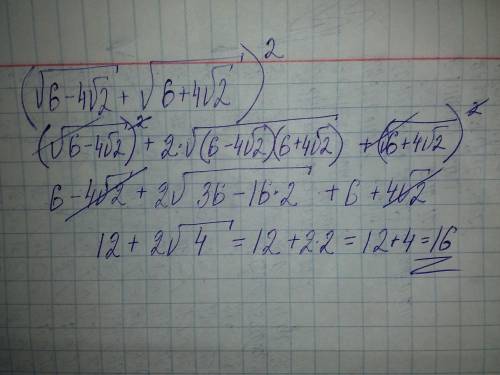 (√(6-4√2) + √(6+4√2))²
(√(6-4√2))² + 2·√((6-4√2)(6+4√2)) + (√(6+4√2))²
6-4√2 + 2√(36-16·2) + 6 + 4√2
12 + 2√4 = 12 + 2·2 = 12+4 = 16